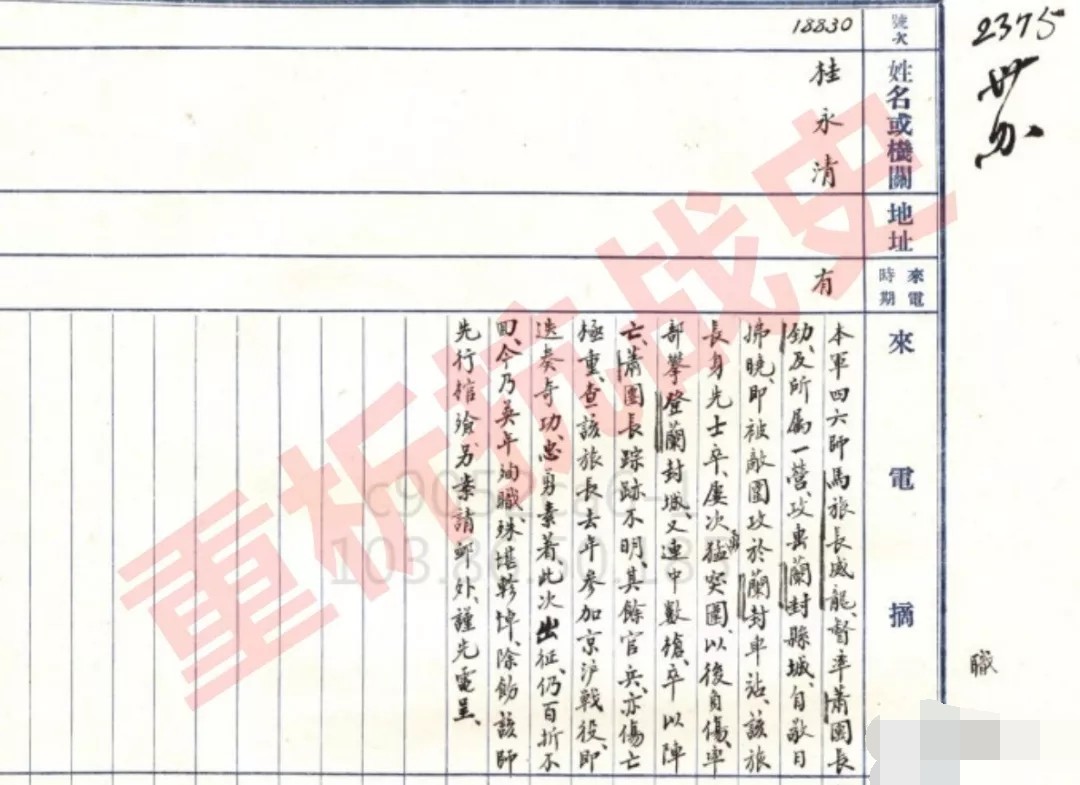 2375
職
號次
姓名或機關
地址
來電時期
來電摘
18830
桂永清
有
本軍四六師馬旅長威龍、督率蕭團長
勁、及所屬一營、攻出蘭封縣城、自敬日
拂曉、即被敵圍攻於蘭封車站、該旅
長身先士卒、屢次猛勇突圍、以後負傷、率
部攀登蘭封城、又連中數槍、卒以陣
亡、蕭團長踪跡不明、其餘官兵、亦傷亡
極重、查該旅長去年參加京沪戰役、即
迭奏奇功、忠勇素著、此次出征、仍百折不
回、今乃英年洵職、殊堪軫悼、除飭該師
先行棺殮另案請卹外、謹先電呈、
重析抗战史